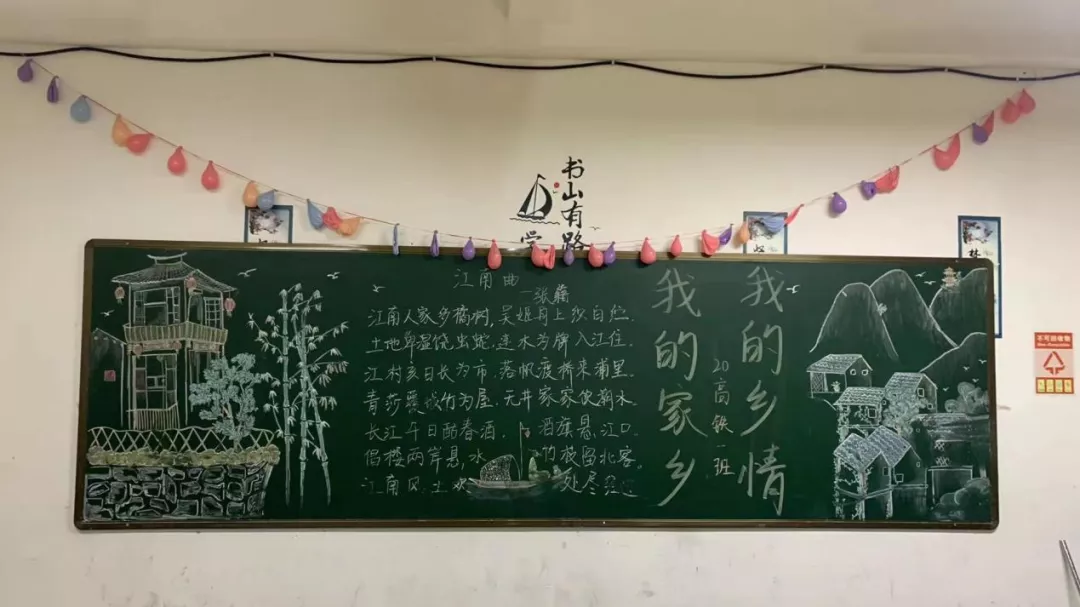 书山有路
学
林
江南曲
—张籍
江南人家多橘树,吴姬舟上织白纻.
土地卑湿饶虫蛇,连木为牌入江住.
江村亥日长为市.落帆渡桥来浦里.
青莎覆城竹为屋.无井家家饮潮水.
长江午日酤春酒, 酒旗悬江口.
倡楼两岸悬,水 竹枝留北客.
江南风土欢 处尽经过
我的乡情
20高铁一班
我的家乡
不可回收物